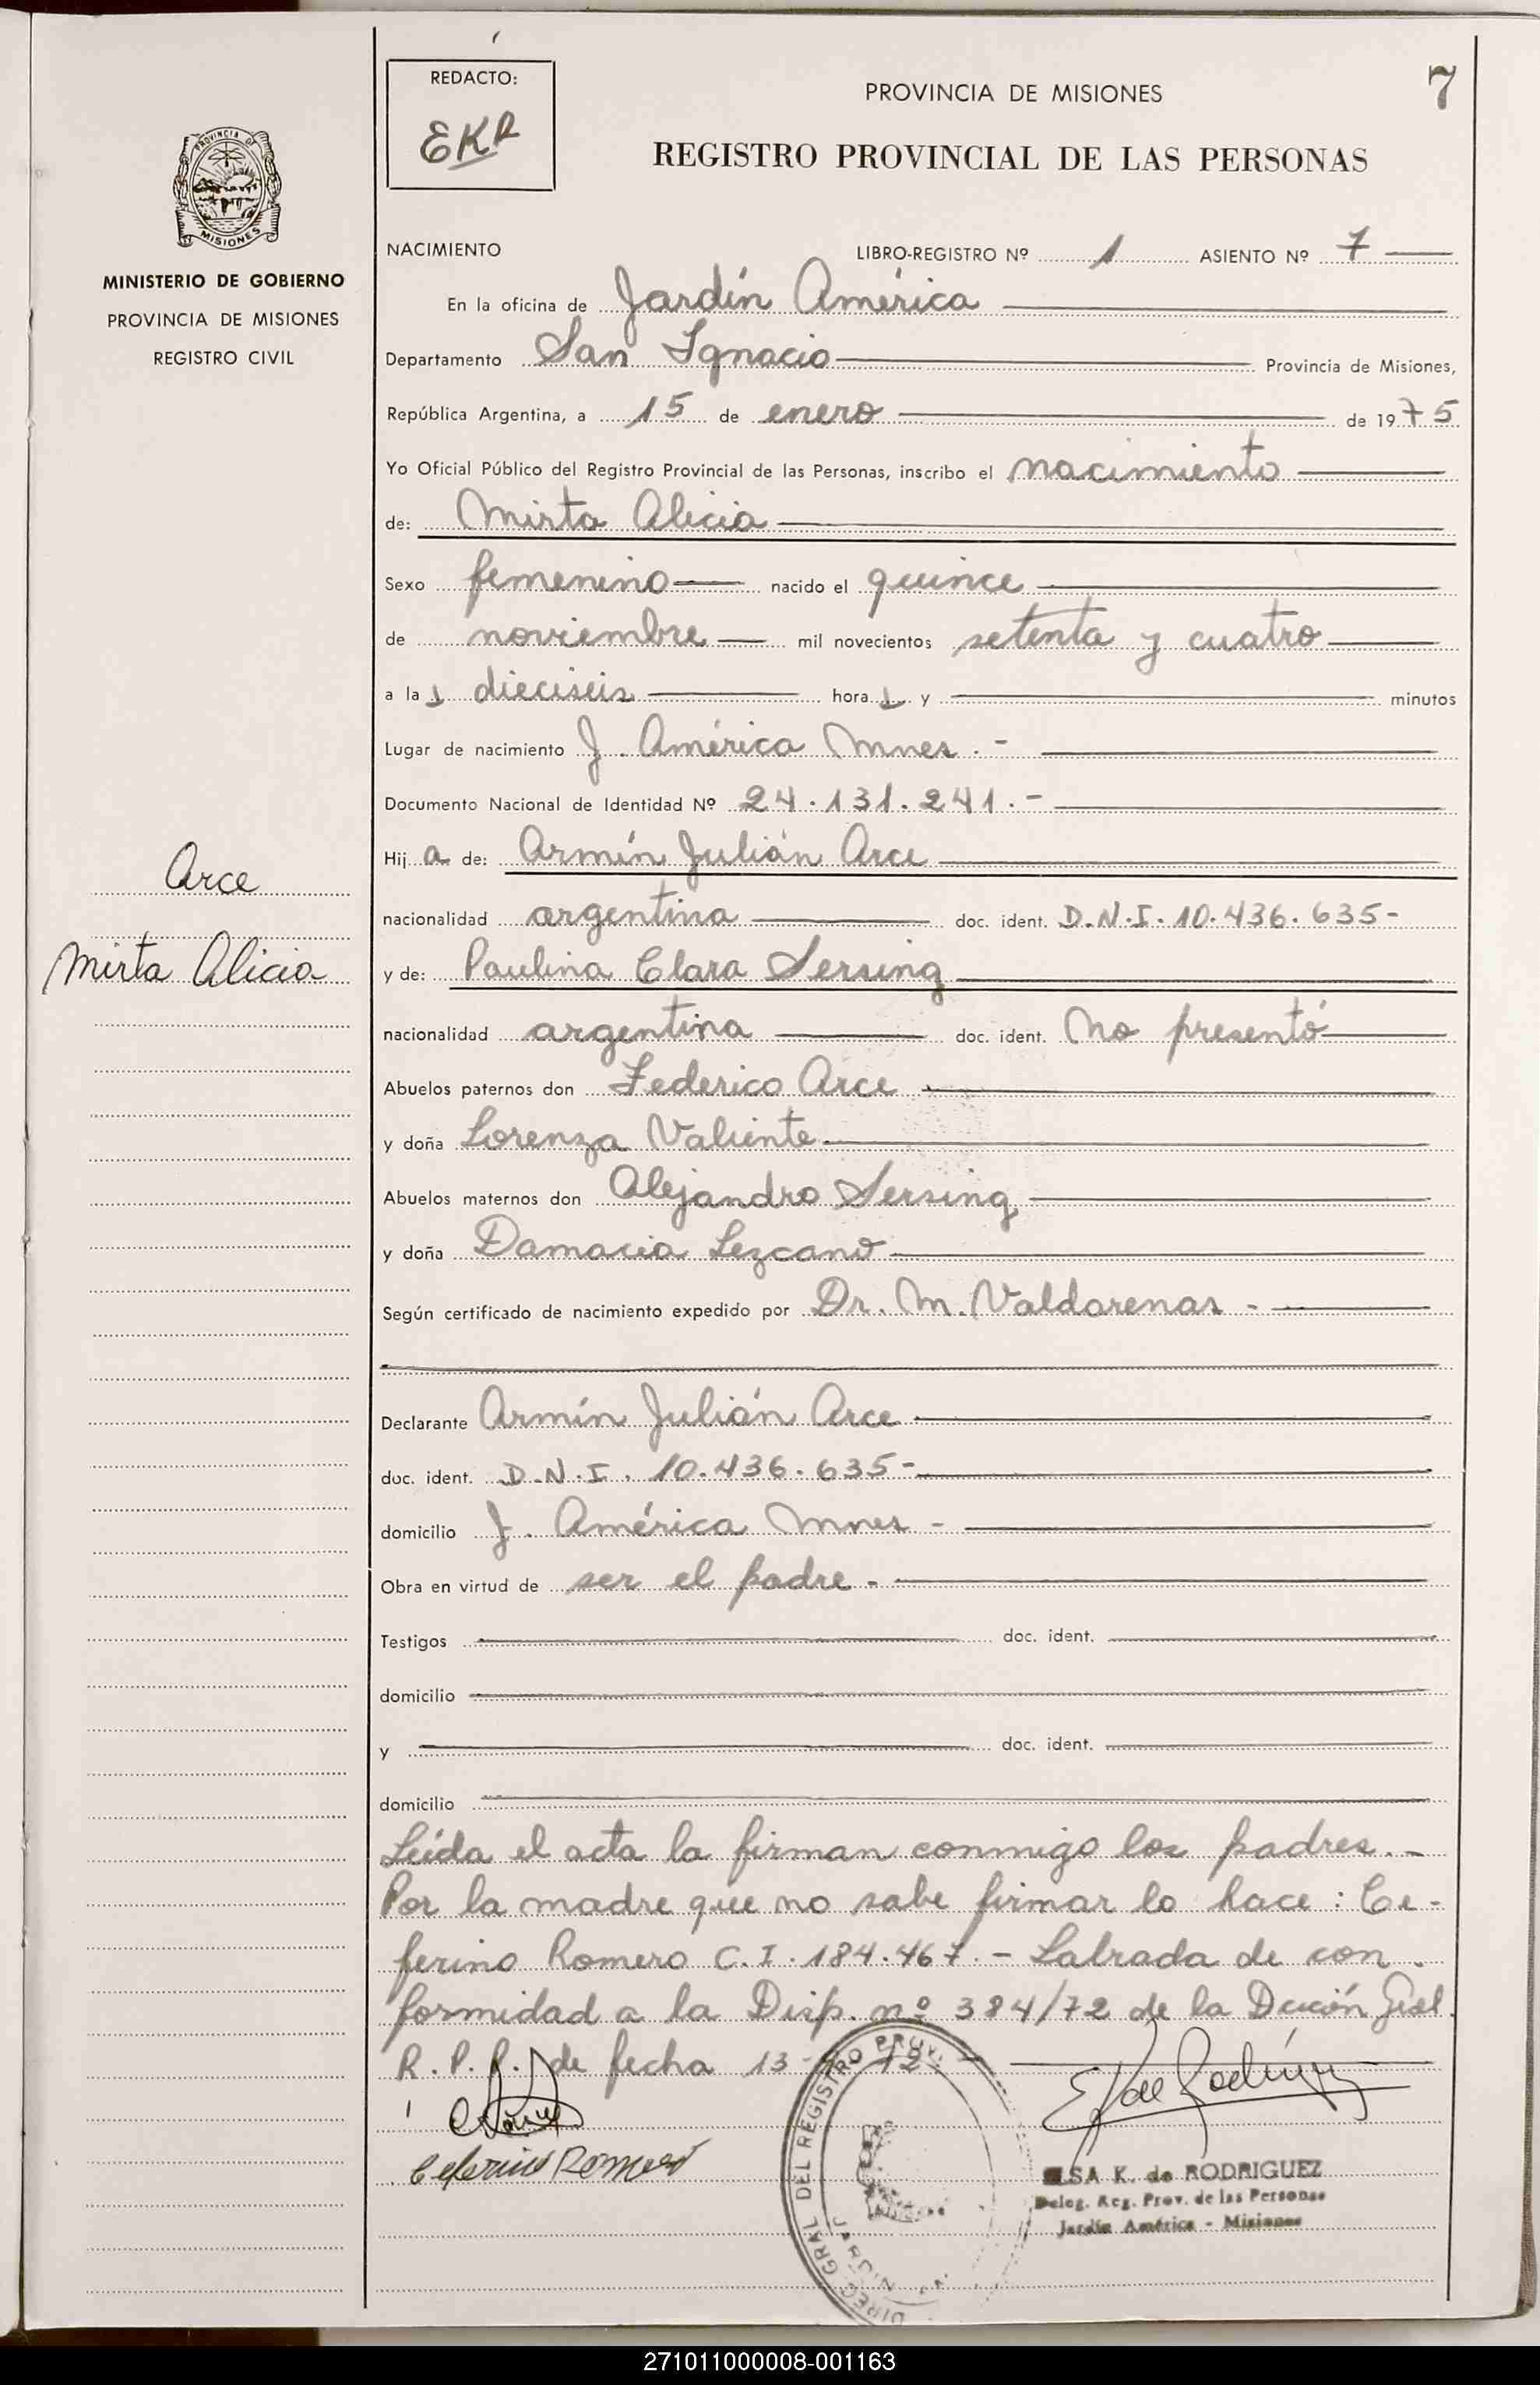 REDACTO:
EKR
PROVINCIA DE MISIONES
7
REGISTRO PROVINCIAL DE LAS PERSONAS
PROVINCIA DE
MISIONES
MINISTERIO DE GOBIERNO
PROVINCIA DE MISIONES
REGISTRO CIVIL
NACIMIENTO LIBRO-REGISTRO Nº 1 ASIENTO Nº 7
En la oficina de Jardín América
Departamento San Ignacio Provincia de Misiones,
República Argentina, a 15 de enero de 1975
Yo Oficial Público del Registro Provincial de las Personas, inscribo el nacimiento
de: Mirta Alicia
Sexo femenino nacido el quince
de noviembre mil novecientos setenta y cuatro
a la s dieciseis hora s y minutos
Lugar de nacimiento J. América Mnes.-
Documento Nacional de Identidad Nº 24.131.241.-
Hij a de: Armín Julián Arce
nacionalidad argentina doc. ident. D.N.I. 10.436.635-
y de: Paulina Clara Sersing
nacionalidad argentina doc. ident. No presentó
Abuelos paternos don Federico Arce
y doña Lorenza Valiente
Abuelos maternos don Alejandro Sersing
y doña Damacia Lezcano
Según certificado de nacimiento expedido por Dr. M. Valdarenas -
Declarante Armín Julián Arce
doc. ident. D.N.I. 10.436.635-
domicilio J. América Mnes -
Obra en virtud de ser el padre -
Testigos doc. ident.
domicilio
y doc. ident.
domicilio
Leída el acta la firman conmigo los padres.-
Por la madre que no sabe firmar lo hace: Ce-
ferino Romero C.I. 184.467.- Labrada de con
formidad a la Disp. nº 384/72 de la Dcción Gral.
R.P.P. de fecha 13- 72 -
Arce
Mirta Alicia
Ceferino Romero
E K de Rodríguez
DIREC. GRAL. DEL REGISTRO PROV.
JARDIN
ELSA K. de RODRIGUEZ
Deleg. Reg. Prov. de las Personas
Jardín América - Misiones
271011000008-001163